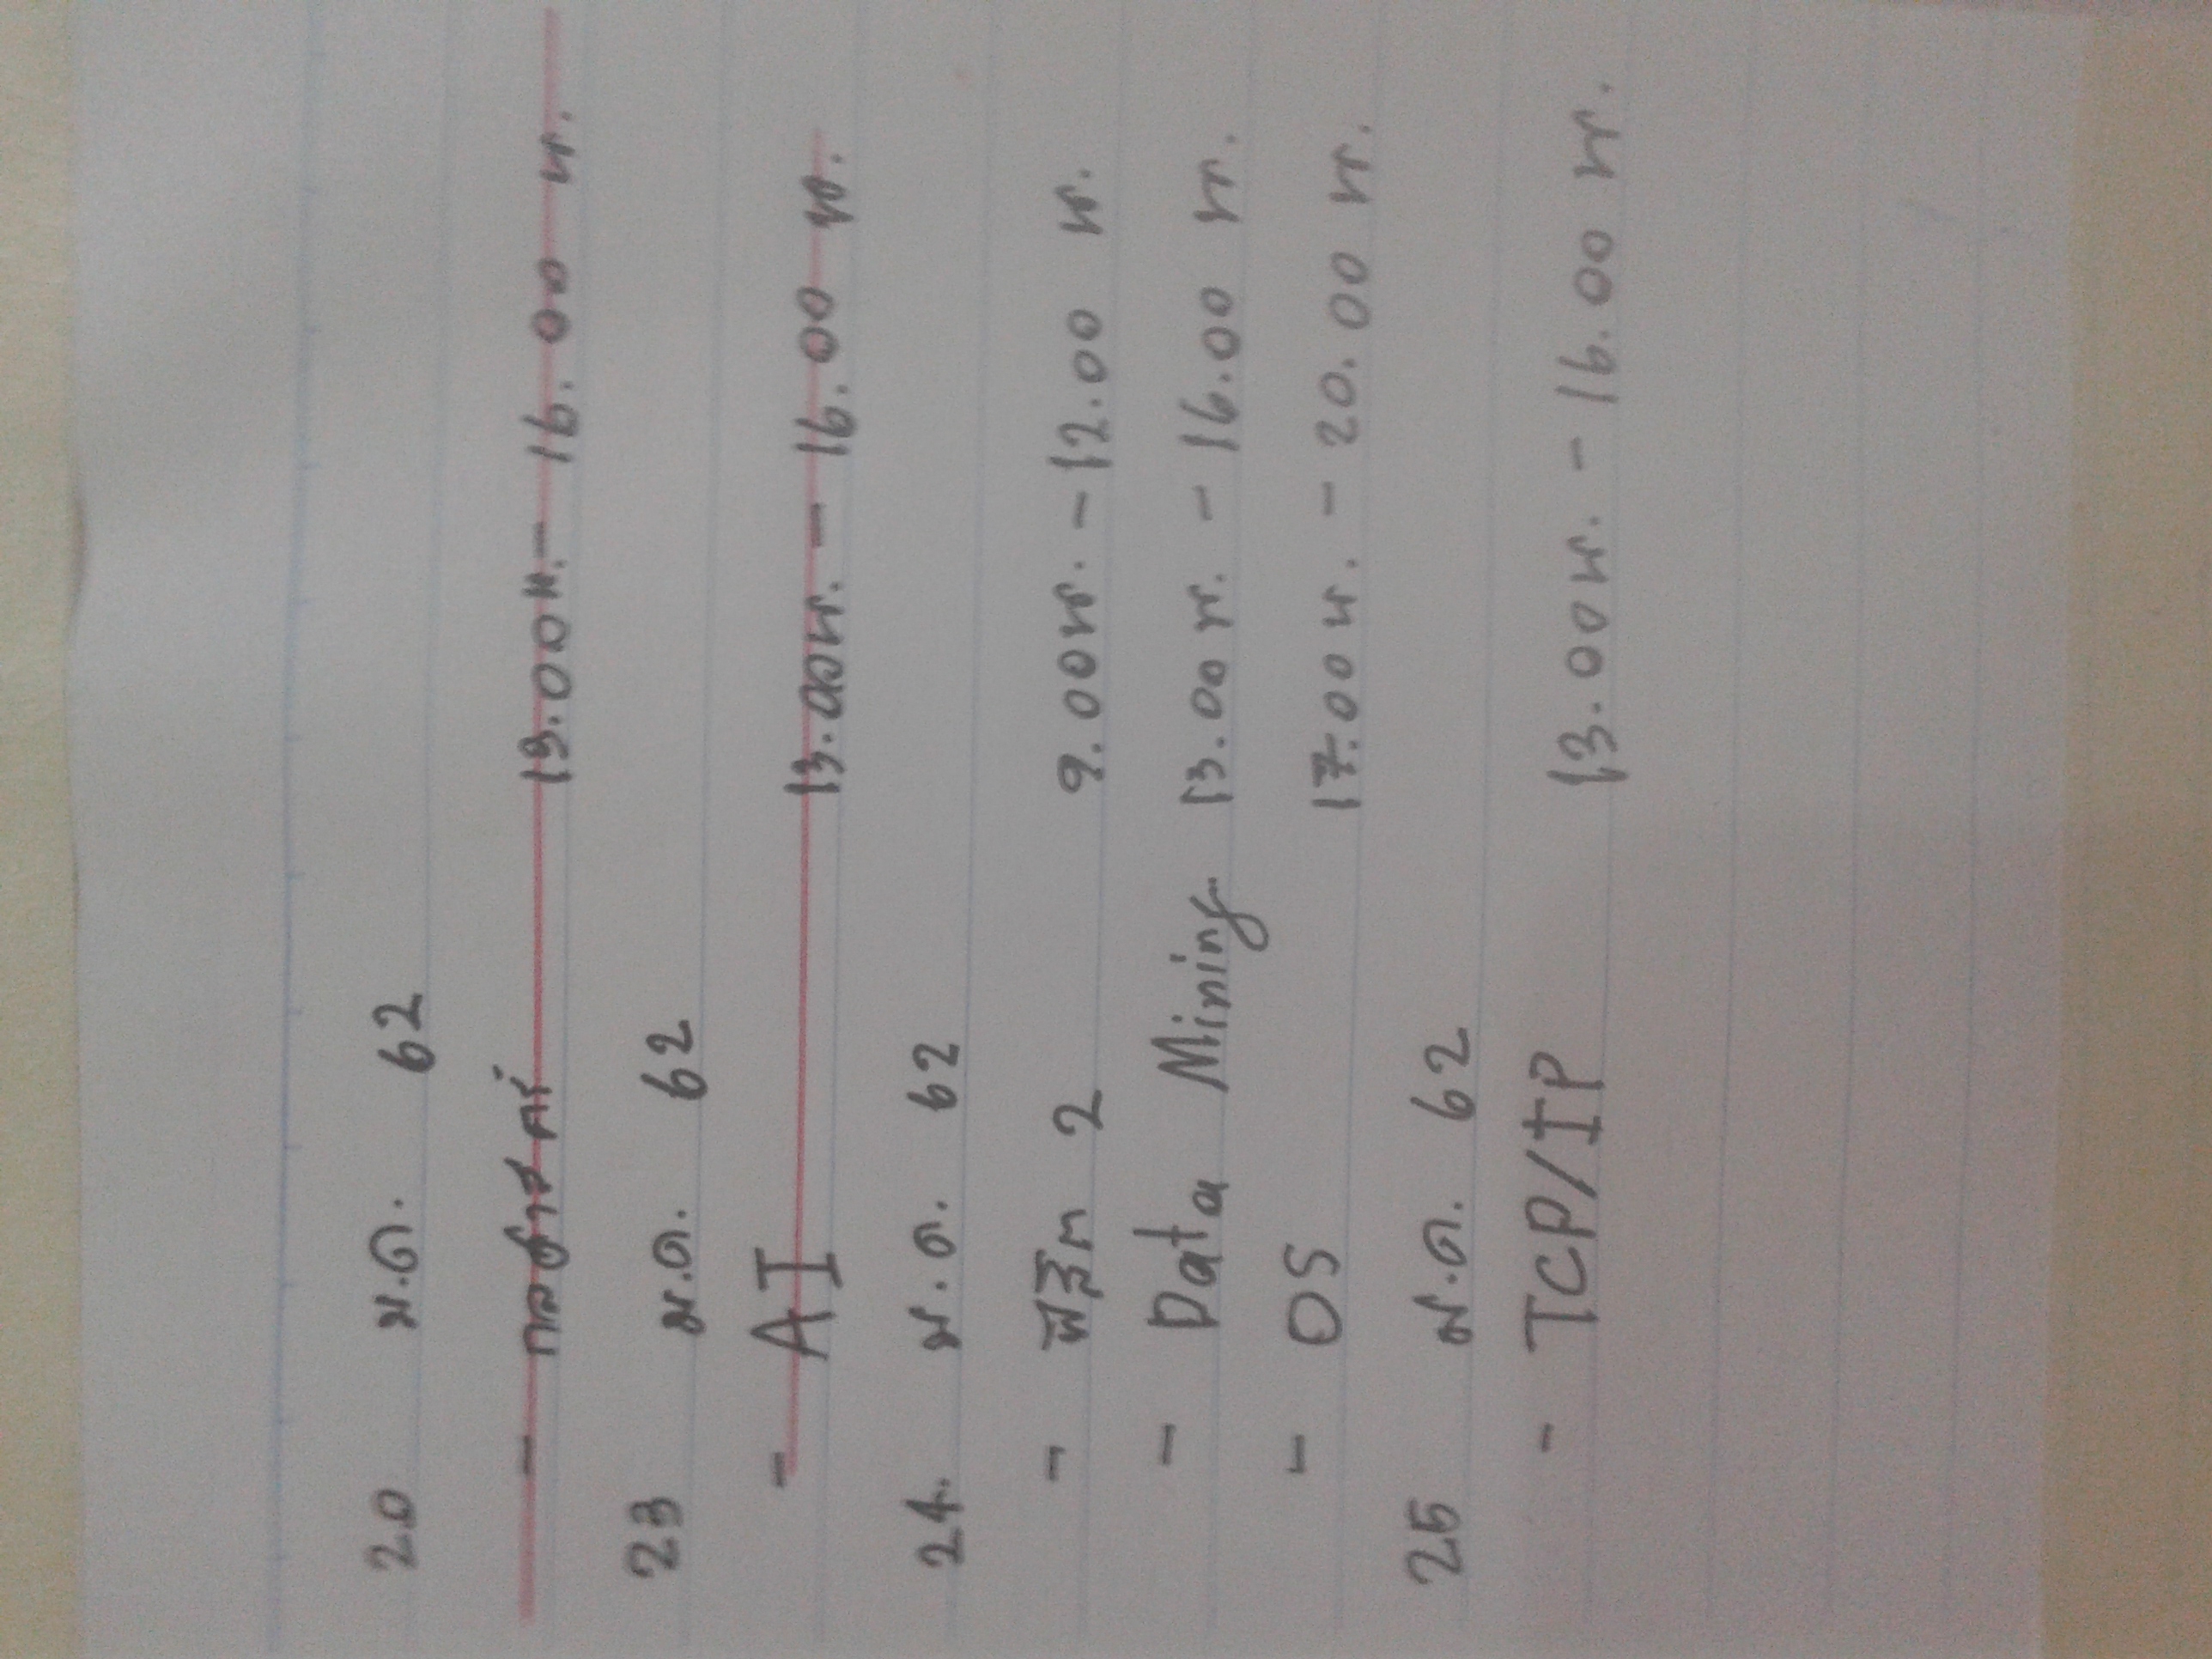 20 ม.ค. 62
- กลศาสตร์ 13.00 น. - 16.00 น.
23 ม.ค. 62
- AI 13.00 น. - 16.00 น.
24. ม.ค. 62
- ฟิสิก 2 9.00 น. - 12.00 น.
- Data Mining 13.00 น. - 16.00 น.
- OS 17.00 น. - 20.00 น.
25 ม.ค. 62
- TCP/IP 13.00 น. - 16.00 น.